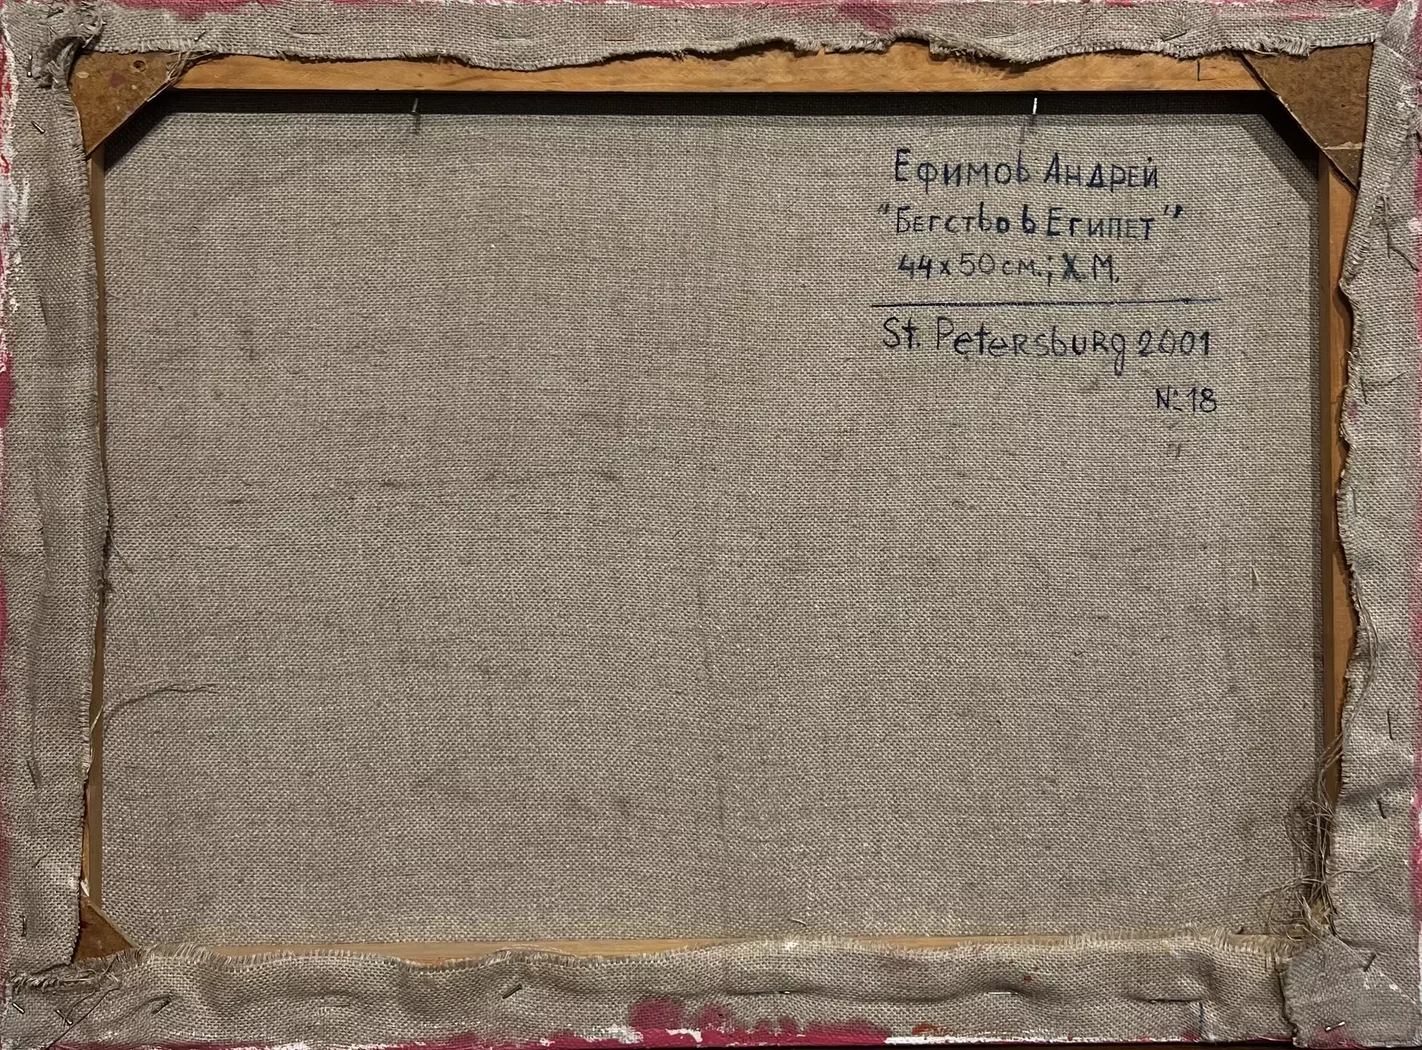 Ефимов Андрей
"Бегство в Египет"
44х50 см.; Х.М.
St. Petersburg 2001
№ 18